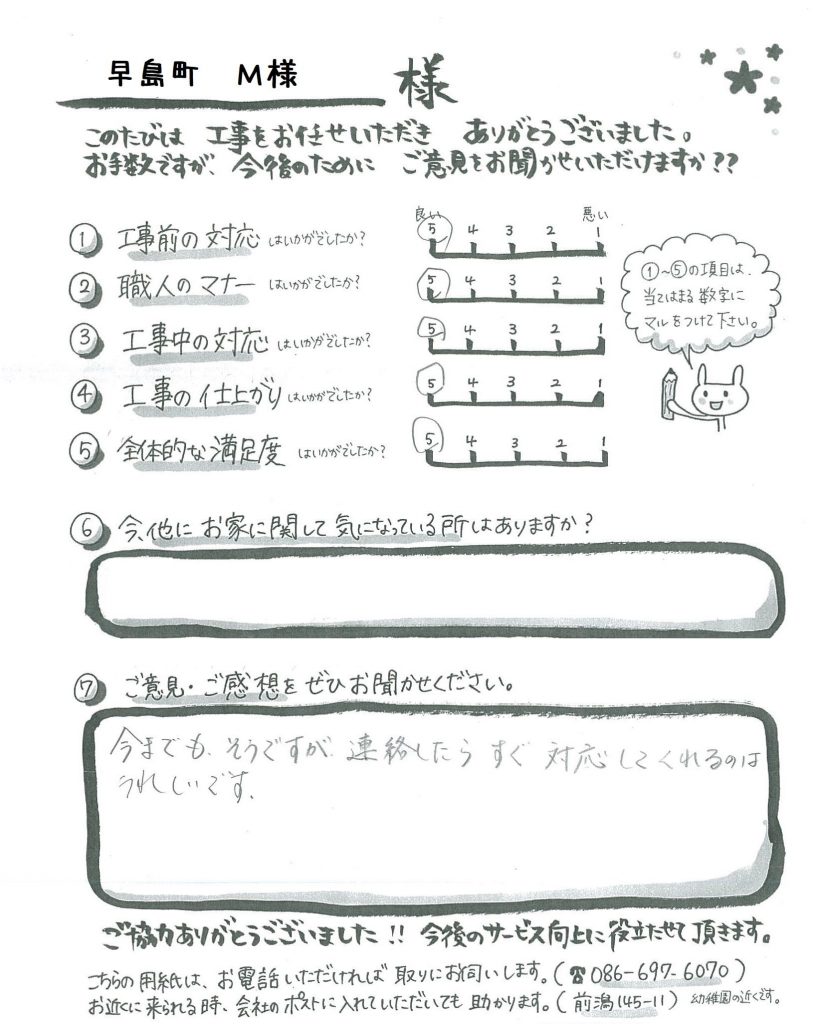 早島町 M様 様
このたびは 工事をお任せいただき ありがとうございました。
お手数ですが、今後のために ご意見をお聞かせいただけますか??
良い 悪い
① 工事前の対応 はいかがでしたか? 5 4 3 2 1
② 職人のマナー はいかがでしたか? 5 4 3 2 1
③ 工事中の対応 はいかがでしたか? 5 4 3 2 1
④ 工事の仕上がり はいかがでしたか? 5 4 3 2 1
⑤ 全体的な満足度 はいかがでしたか? 5 4 3 2 1
①~⑤の項目は、
当てはまる数字に
マルをつけて下さい。
⑥ 今、他に お家に関して 気になっている所はありますか?
⑦ ご意見・ご感想を ぜひお聞かせください。
今までも、そうですが、連絡したら すぐ 対応してくれるのは
うれしいです。
ご協力ありがとうございました!! 今後のサービス向上に役立たせて頂きます。
こちらの用紙は、お電話いただければ 取りにお伺いします。(☎086-697-6070)
お近くに来られる時、会社のポストに入れていただいても 助かります。(前潟145-11) 幼稚園の近くです。